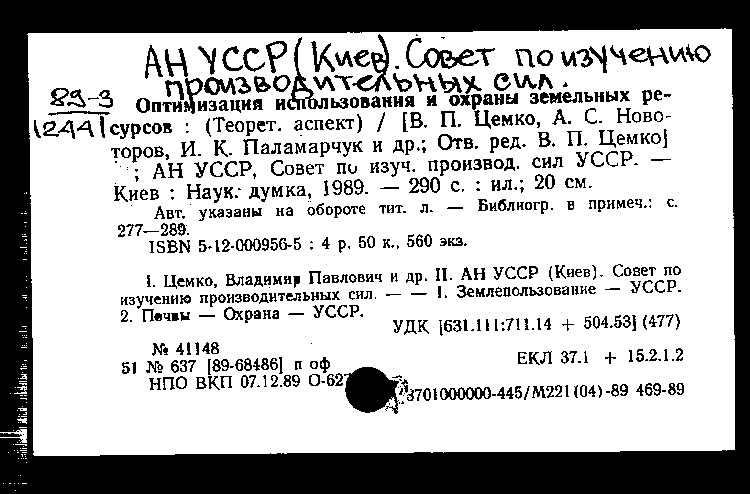 АН УССР (Киев). Совет по изучению
производительных сил.
89-3
12441
Оптимизация использования и охраны земельных ре-
сурсов : (Теорет. аспект) / [В. П. Цемко, А. С. Ново-
торов, И. К. Паламарчук и др.; Отв. ред. В. П. Цемко]
; АН УССР, Совет по изуч. производ. сил УССР. —
Киев : Наук. думка, 1989. — 290 с. : ил.; 20 см.
Авт. указаны на обороте тит. л. — Библиогр. в примеч.: с.
277—289.
ISBN 5-12-000956-5 : 4 р. 50 к., 560 экз.
I. Цемко, Владимир Павлович и др. II. АН УССР (Киев). Совет по
изучению производительных сил. — — 1. Землепользование — УССР.
2. Почвы — Охрана — УССР.
УДК [631.111:711.14 + 504.53] (477)
№ 41148
51 № 637 [89-68486] п оф
ЕКЛ 37.1 + 15.2.1.2
НПО ВКП 07.12.89 О-627
3701000000-445/М221(04)-89 469-89